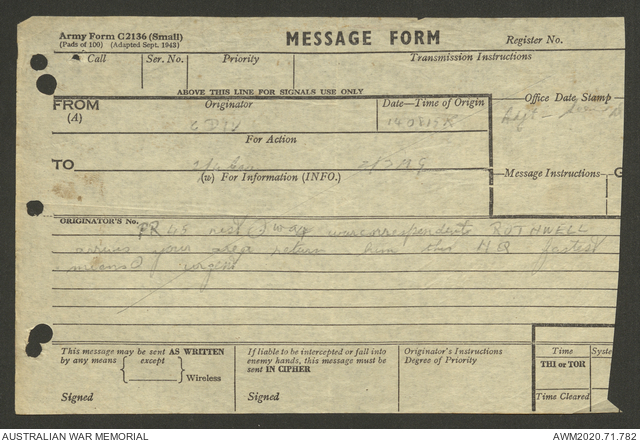 Army Form C2136 (Small)
(Pads of 100) (Adapted Sept. 1943)
MESSAGE FORM
Register No.
Call
Ser. No.
Priority
Transmission Instructions
ABOVE THIS LINE FOR SIGNALS USE ONLY
FROM
(A)
Originator
Date—Time of Origin
Office Date Stamp
For Action
TO
(w) For Information (INFO.)
Message Instructions
G
ORIGINATOR'S No.
PR 49 war correspondents ROTHWELL
your area return him this HQ fastest
means urgent
This message may be sent AS WRITTEN
by any means except
Wireless
Signed
If liable to be intercepted or fall into
enemy hands, this message must be
sent IN CIPHER
Signed
Originator's Instructions
Degree of Priority
Time
Syste
THI or TOR
Time Cleared
AUSTRALIAN WAR MEMORIAL
AWM2020.71.782